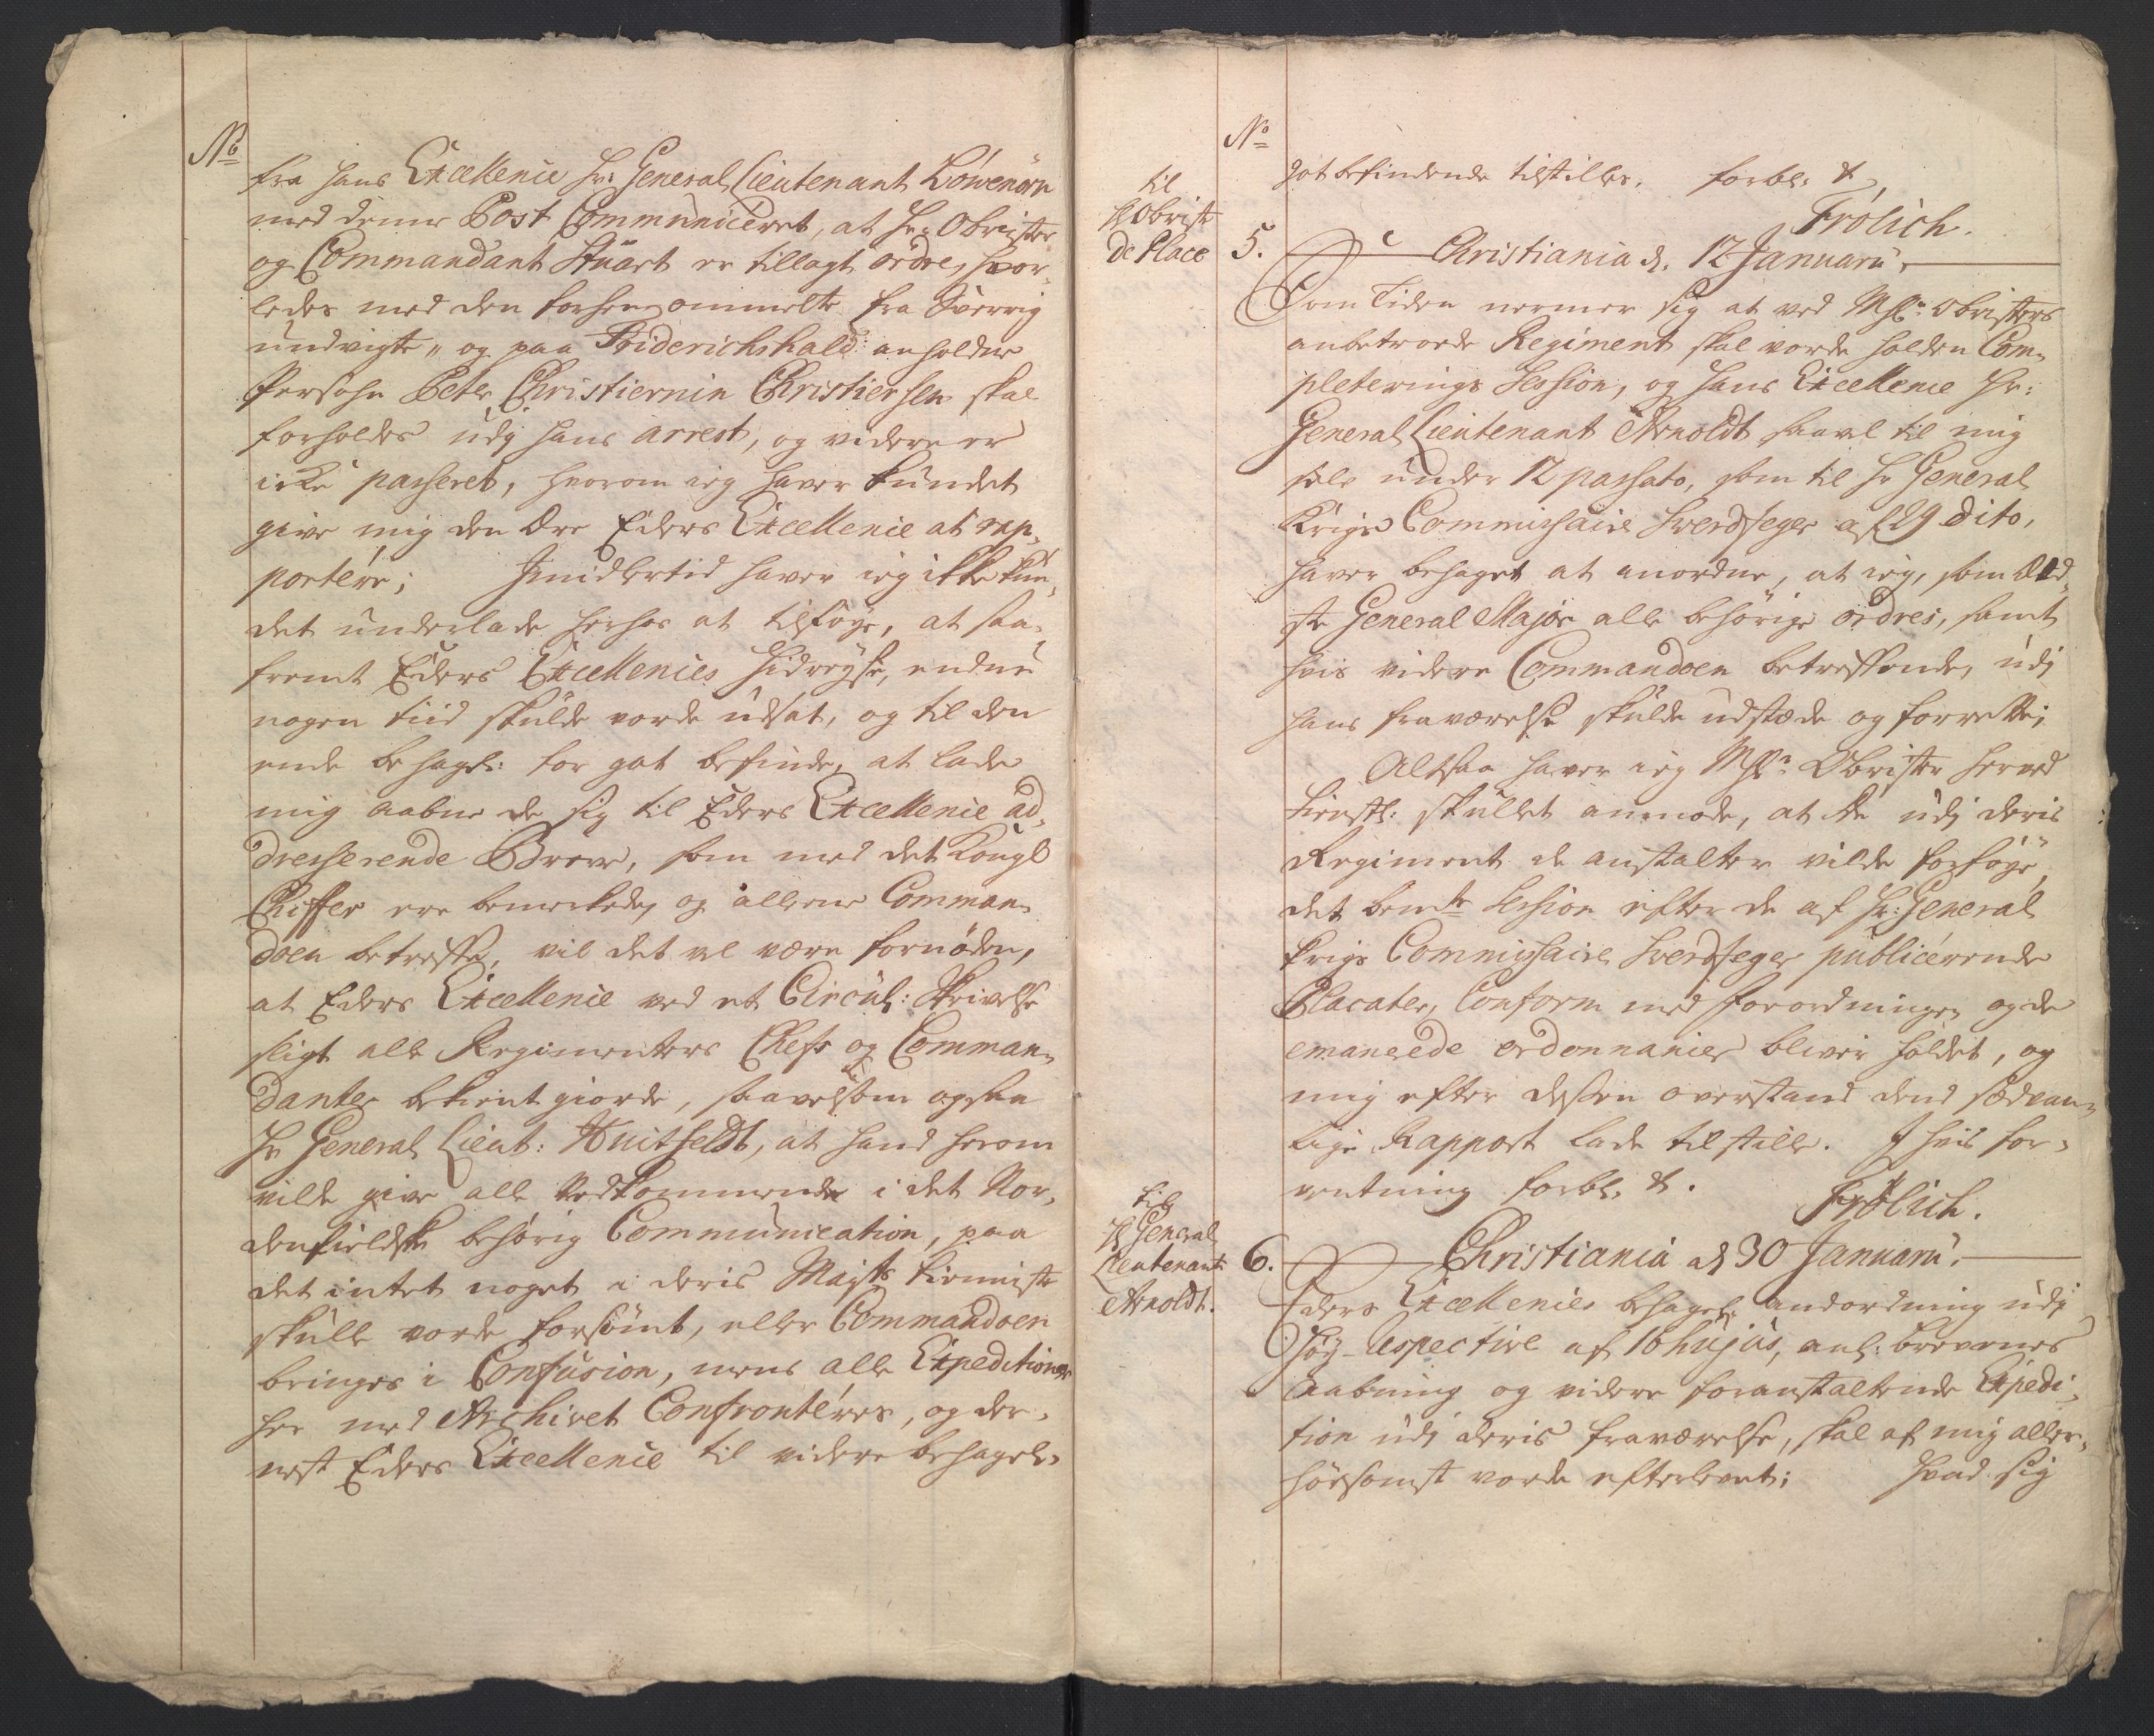 No
fra hans Excellence Hr: General Lieutenant Löwenörn
med denne Post Communiceret, at Hr: Obrister
og Commandant Stüart er tillagt ordre, hvor-
ledes med den forhen ommelte fra Sverrig
undvigte, og paa Friderichshald anholdne
Persohn Peter Christiernin Christiersen skal
forholdes udj hans arrest, og videre er
icke passeret, hvorom ieg haver kundet
give mig den Ære Eders Excellence at rap-
portere; Imidlertid haver ieg ikke kun-
det underlade herhos at tilföye, at saa-
fremt Eders Excellences Hidreyse, endnu
nogen tiid skulde vorde udsat, og til den
ende behagel: for got befinde, at lade
mig aabne de sig til Eders Excellence ad-
dresserende Breve, som med det Kongl
Chiffer ere bemerkede, og allene Comman-
doen betreffe, vil det vel være fornöden,
at Eders Excellence ved et Circul: Skrivelse
sligt alle Regimenters Chefs og Comman-
danter bekient giorde, saavelsom ogsaa
Hr General Lieut: Huitfeldt, at hand herom
vilde give alle Vedkommende i det Nor-
denfieldske behörig Communication, paa
det intet noget i deris Majts tienniste
skulle vorde forsömt, eller Commandoen
bringes i Confusion, mens alle Expeditioner
her med Archivet Confronteres, og der-
nest Eders Excellence til videre behagel-
No
got befindende tilstilles. forbl: &
Frölich.
til
H Obriste
De Place
5. Christiania d. 12 Januarii.
Som Tiden nermer sig at ved MHr: Obristers
anbetroede Regiment skal vorde holden Com-
pleterings Session, og hans Excellence Hr:
General Lieutenant Arnoldt saavel til mig
selv under 12 passato, som til Hr General
Krigs Commissaire Sverdfeger af 29 dito,
haver behaget at anordne, at ieg, som Eld-
ste General Major alle behörige ordres, samt
hvis videre Commandoen betreffende, udj
hans fraværelse skulde udstæde og forrette;
Altsaa haver ieg MHr: Obrister herved
tienstl: skullet anmode, at De udj deris
Regiment de anstalter vilde forföye,
det bemte Session efter de af Hr: General
Krigs Commissaire Sverdfeger publicerende
Placater, Conform med forordningen og de
emanerede ordonnancer bliver holdet, og
mig efter dessen overstand dend sædvan-
lige Rapport lade tilstille. I hvis for-
ventning forbl. &.
Frölich.
til
H General
Lieutenant
Arnoldt.
6. Christiania d 30 Januarii.
Eders Excellences behagel: andordning udj
Höy-Respective af 16 hujus, anl: brevenes
Aabning og videre foranstaltende Expedi-
tion udj deris fraværelse, skal af mig aller-
hörsomst vorde efterlevet; Hvad sig